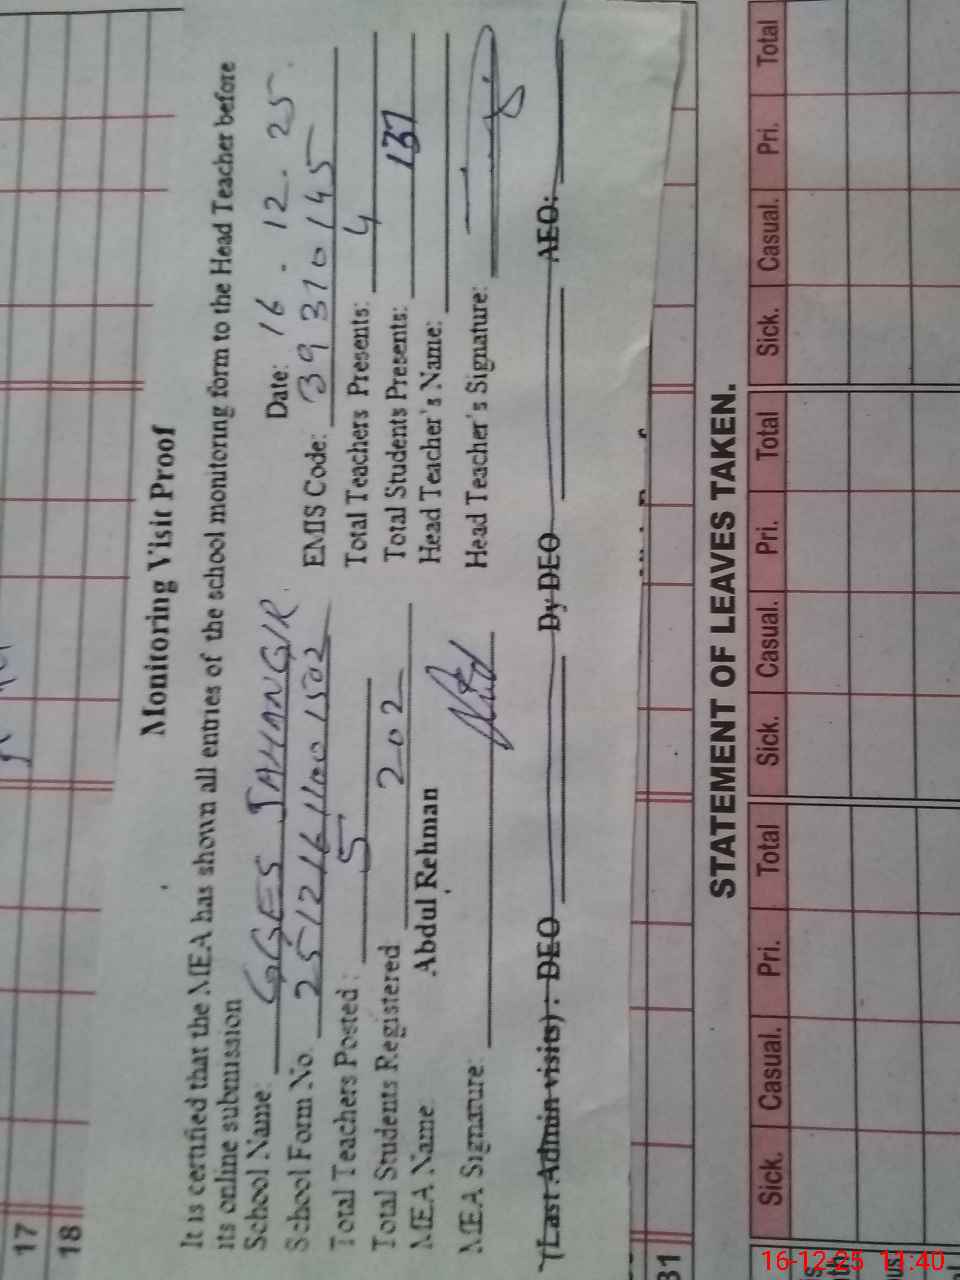 17
18
Monitoring Visit Proof
It is certified that the MEA has shown all entries of the school monitoring form to the Head Teacher before
its online submission
School Name: GGES JAHANGIR. Date: 16-12-25.
School Form No. 25121611001502 EMIS Code: 39310145
Total Teachers Posted: 5 Total Teachers Presents: 4
Total Students Registered 202 Total Students Presents: 137
MEA Name: Abdul Rehman Head Teacher's Name:
MEA Signature: Head Teacher's Signature:
(Last Admin visits) : DEO Dy DEO AEO:
31
STATEMENT OF LEAVES TAKEN.
Sick. Casual. Pri. Total Sick. Casual. Pri. Total Sick. Casual. Pri. Total
16-12-25 11:40